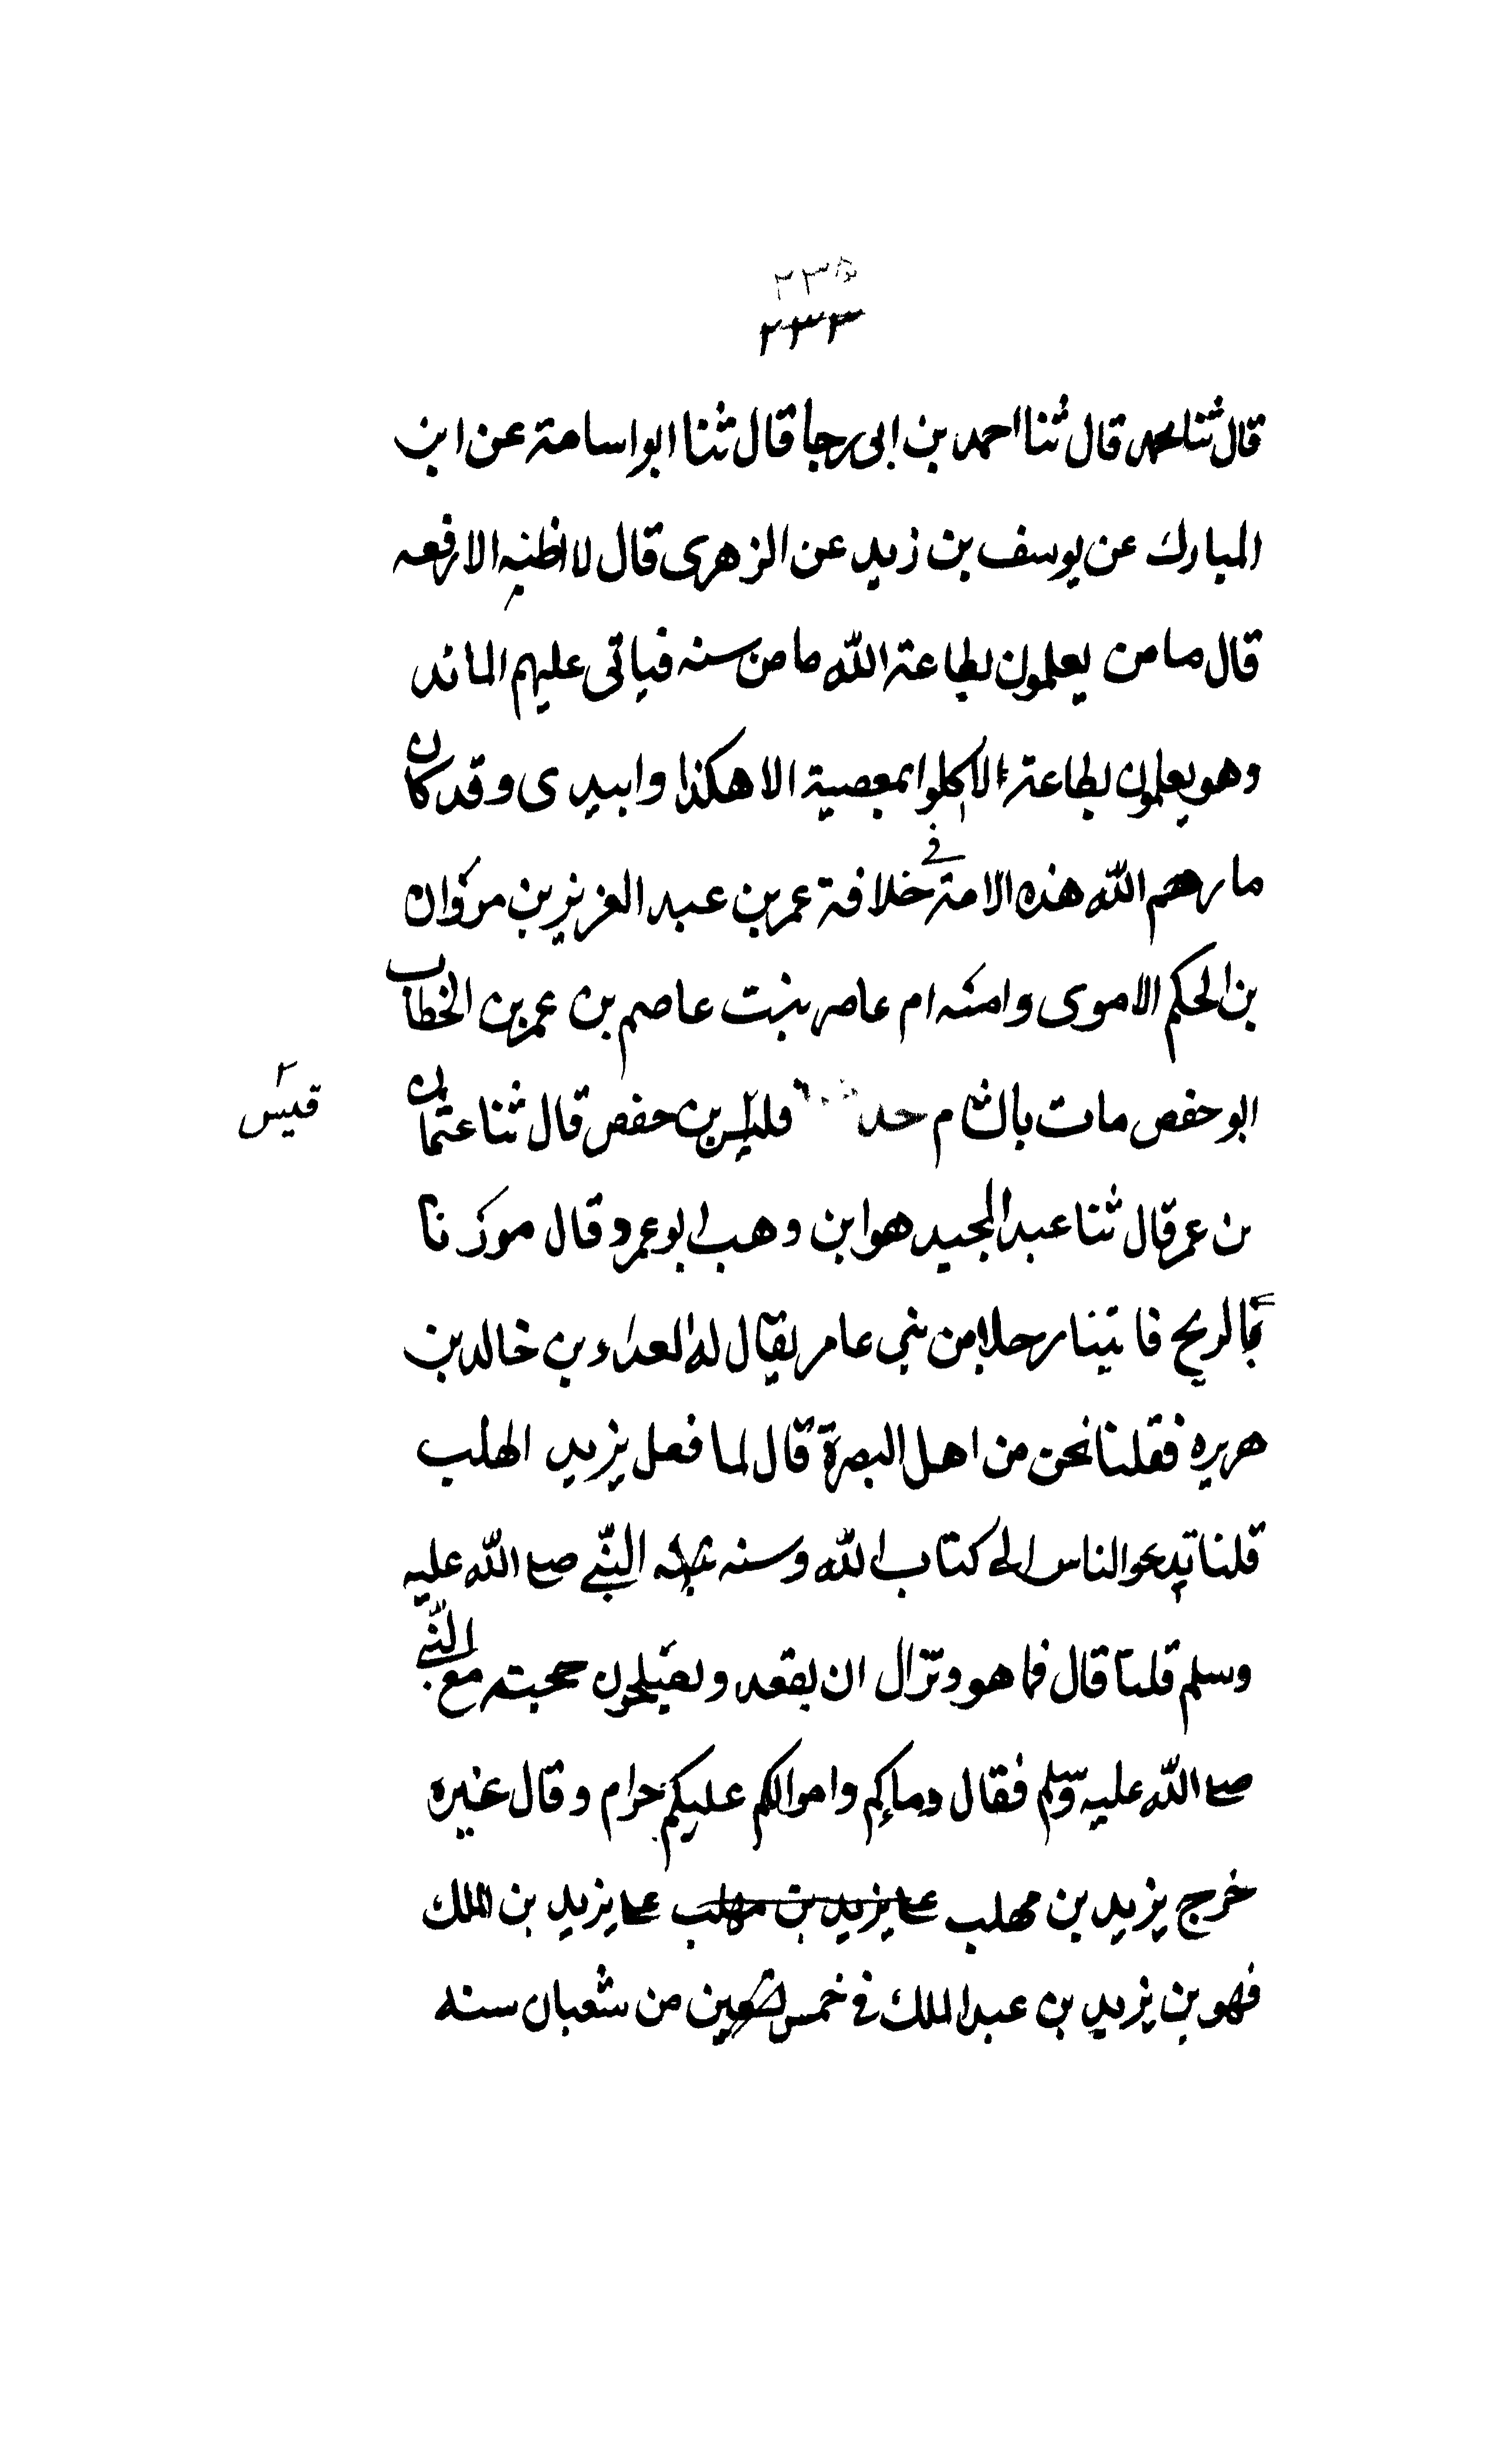 ٢٣٥
٢٣٣
قال ثنا محمد قال ثنا احمد بن ابى رجا قال ثنا ابو اسامة عن ابن
المبارك عن يوسف بن زيد عن الزهرى قال لا اظنه الا رفعه
قال ما من يعلمون بطاعة الله ما من سنه فياتى عليهم المائد
وهو يعلمون بطاعة الا اكلوا بمعصية الا هكذا وابيدى وقد كان
ما رحم الله هذه الامة فى خلافة عمر بن عبد العزيز بن مروان
بن الحكم الاموى وامه ام عاصم بنت عاصم بن عمر بن الخطاب
ابو حفص مات بالشام بن حفص قال ثنا عثمان
قيس
بن عمر قال ثنا عبد المجيد هو ابن وهب ابو عمرو قال مورنا
بالريح فاتينا رجلا من بنى عامر يقال له العداء بن خالد بن
هريره فقلنا نحن من اهل البصرة قال لما فعل يزيد المهلب
قلنا يدعو الناس الى كتاب الله وسنه النبى صلى الله عليه
وسلم قلنا قال فما هو وتزال ان يقعد صحبته مع النبى
صلى الله عليه وسلم فقال دماكم واموالكم عليكم حرام وقال غيره
خرج يزيد بن مهلب على يزيد بن مهلب على يزيد بن الملك
فهو بن يزيد بن عبد الملك فى خمس من شعبان سنه